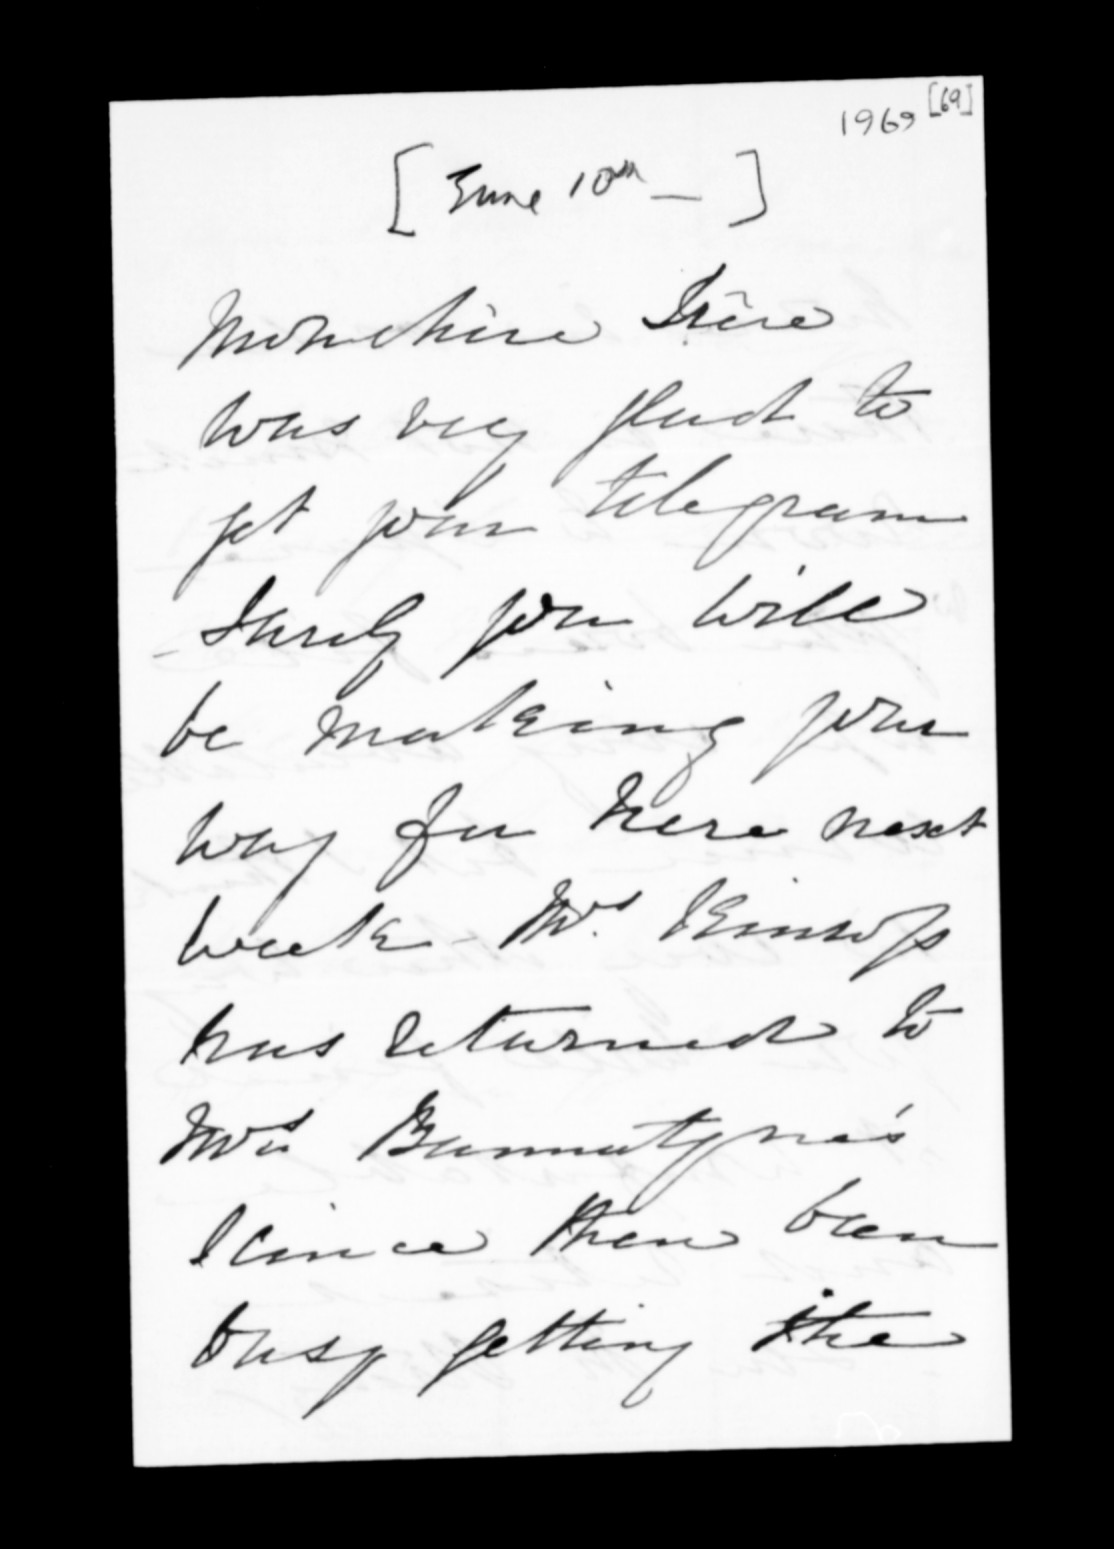 1969 [69]
[June 10th — ]
Mon chère frère
was very glad to
get your telegram
- Surely you will
be making your
way for here next
week - Mrs
has returned to
Mrs Bannatyne's
I since then been
busy getting the